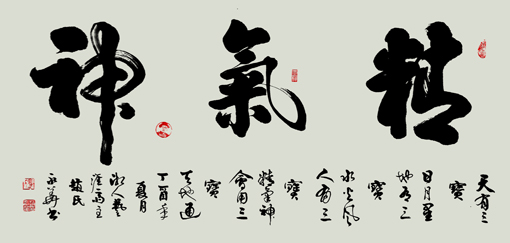 精氣神
天有三
寶
日月星
地有三
寶
水火風
人有三
寶
精氣神
會用三
寶
天地通
丁酉年
夏月